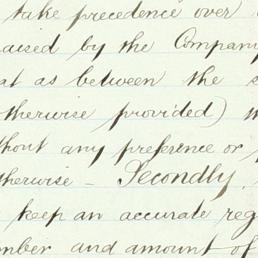 take precedence over
aised by the Company
at as between the s
therwise provided)
thout any preference or
therwise - Secondly,
keep an accurate reg
mber and amount of